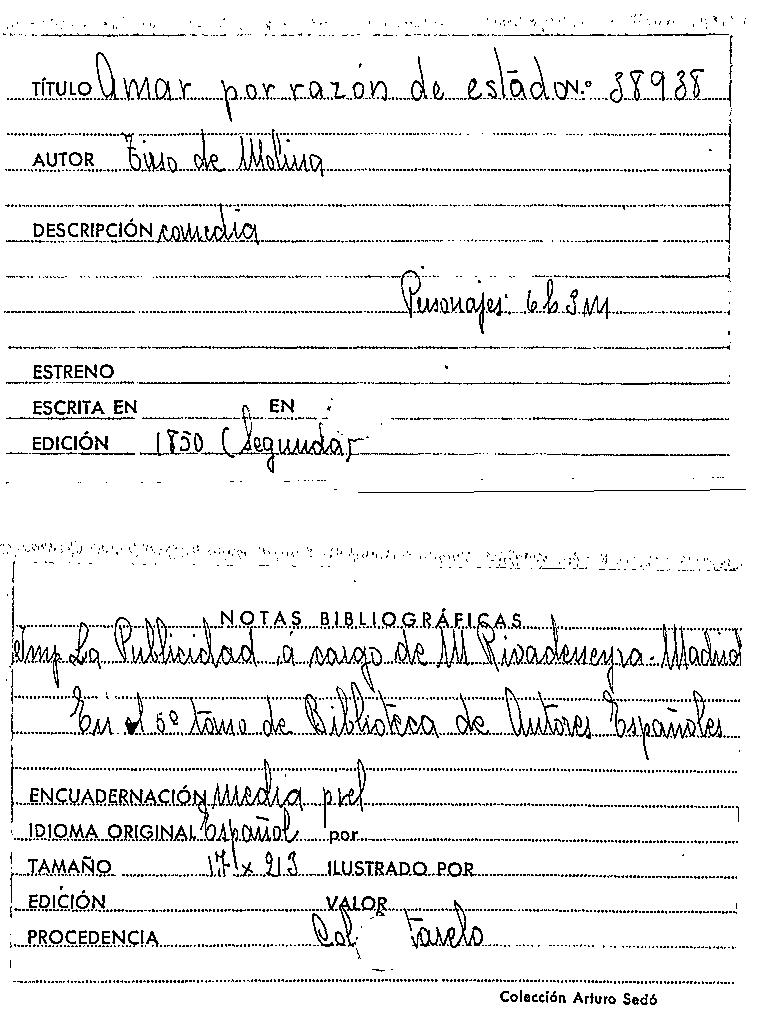 TÍTULO Amar por razón de estado N.º 38938
AUTOR Tirso de Molina
DESCRIPCIÓN comedia
Personajes: 6 h 3 M
ESTRENO
ESCRITA EN EN
EDICIÓN 1850 (Segunda)
NOTAS BIBLIOGRÁFICAS
Imp La Publicidad á cargo de M Rivadeneyra - Madrid
En el 5º tomo de Biblioteca de Autores Españoles
ENCUADERNACIÓN media piel
IDIOMA ORIGINAL Español por
TAMAÑO 17 x 213 ILUSTRADO POR
EDICIÓN VALOR
PROCEDENCIA Col
Colección Arturo Sedó